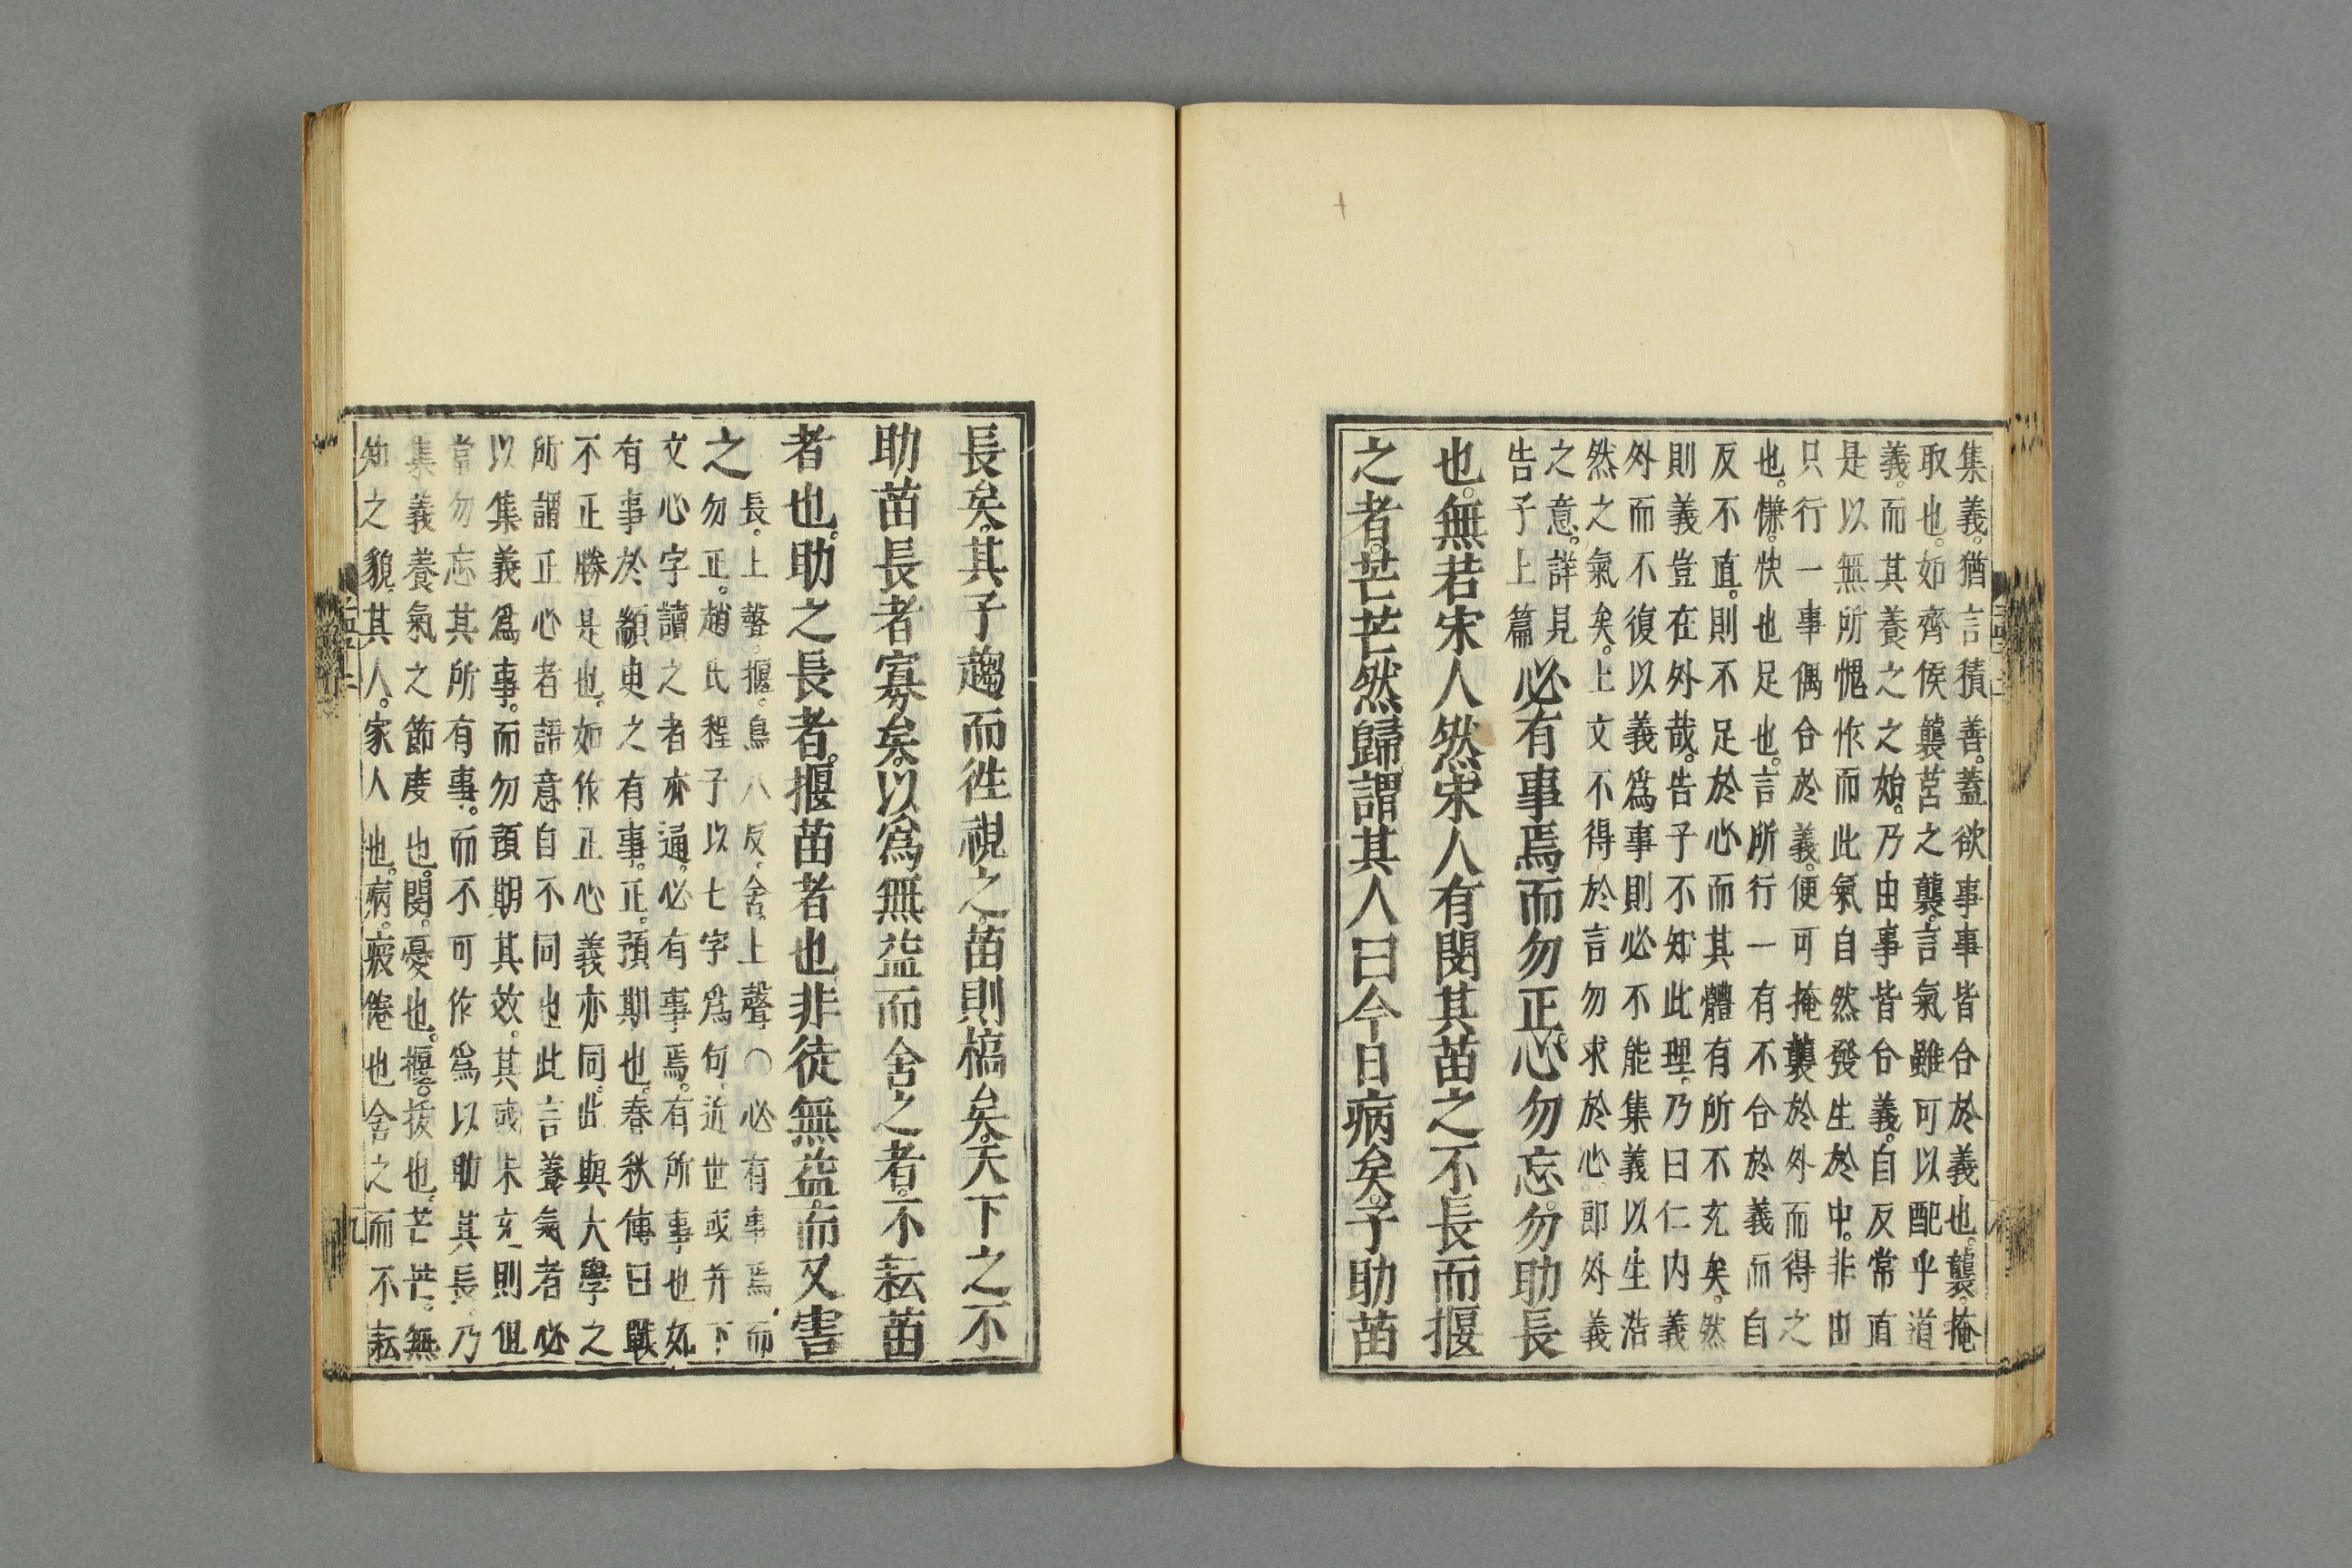 集義。猶言積善。蓋欲事事皆合於義也。襲。掩
取也。如齊侯襲莒之襲。言氣雖可以配乎道
義。而其養之之始。乃由事皆合義。自反常直
是以無所愧怍而此氣自然發生於中。非由
只行一事偶合於義。便可掩襲於外而得之
也。慊。快也足也。言所行一有不合於義而自
反不直。則不足於心而其體有所不充矣。然
則義豈在外哉。告子不知此理。乃曰仁內義
外而不復以義爲事則必不能集義以生浩
然之氣矣。上文不得於言勿求於心即外義
之意。詳見
告子上篇
必有事焉而勿正。心勿忘。勿助長
也。無若宋人然。宋人有閔其苗之不長而揠
之者。芒芒然歸謂其人曰今日病矣。予助苗
長矣。其子趨而徃視之。苗則槁矣。天下之不
助苗長者寡矣。以爲無益而舍之者。不耘苗
者也。助之長者。揠苗者也非徒無益。而又害
之
長。上聲。揠。烏八反。舍。上聲〇必有事焉。而
勿正。趙氏程子以七字爲句。近世或并下
文心字讀之者亦通。必有事焉。有所事也。如
有事於顓臾之有事。正。預期也。春秋傳曰戰
不正勝是也。如作正心義亦同。此與大學之
所謂正心者語意自不同也此言養氣者必
以集義爲事。而勿預期其效。其或未充則但
當勿忘其所有事。而不可作爲以助其長。乃
集義養氣之節度也。閔。憂也。揠。拔也。芒芒。無
知之貌。其人。家人也。病。疲倦也舍之而不耘
九